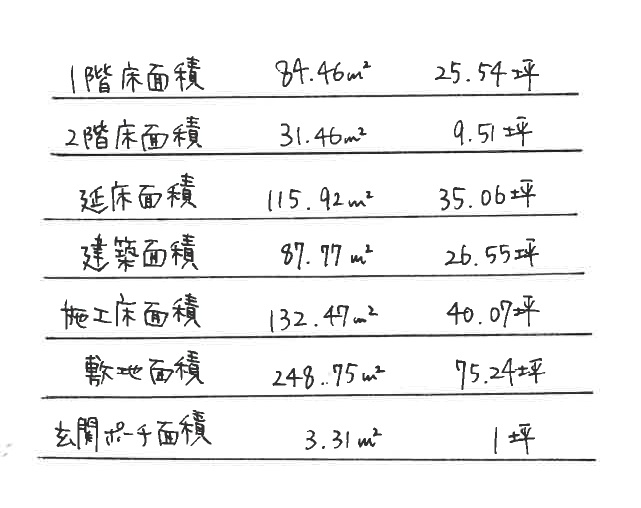 1階床面積 84.46m² 25.54坪
2階床面積 31.46m² 9.51坪
延床面積 115.92m² 35.06坪
建築面積 87.77m² 26.55坪
施工床面積 132.47m² 40.07坪
敷地面積 248.75m² 75.24坪
玄関ポーチ面積 3.31m² 1坪